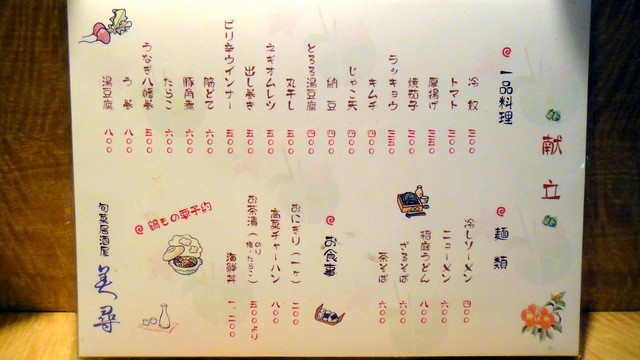 献立
一品料理
冷奴 三〇〇
トマト 三〇〇
厚揚げ 三五〇
焼茄子 三五〇
ラッキョウ 三五〇
キムチ 四〇〇
じゃこ天 四〇〇
納豆 四〇〇
とろろ湯豆腐 四〇〇
丸干し 五〇〇
ネギオムレツ 五〇〇
出し巻き 五〇〇
ピリ辛ウインナー 五〇〇
豚角煮 六〇〇
たらこ 六〇〇
うなぎ八幡巻 五〇〇
う巻 八〇〇
湯豆腐 八〇〇
麺類
冷しソーメン 四〇〇
ニューメン 六〇〇
稲庭うどん 八〇〇
ざるそば 六〇〇
茶そば 六〇〇
お食事
おにぎり(一ヶ) 二〇〇
高菜チャーハン 八〇〇
お茶漬 五〇〇より
海鮮丼 一、二〇〇
鶏もの要予約
旬菜居酒屋 美尋